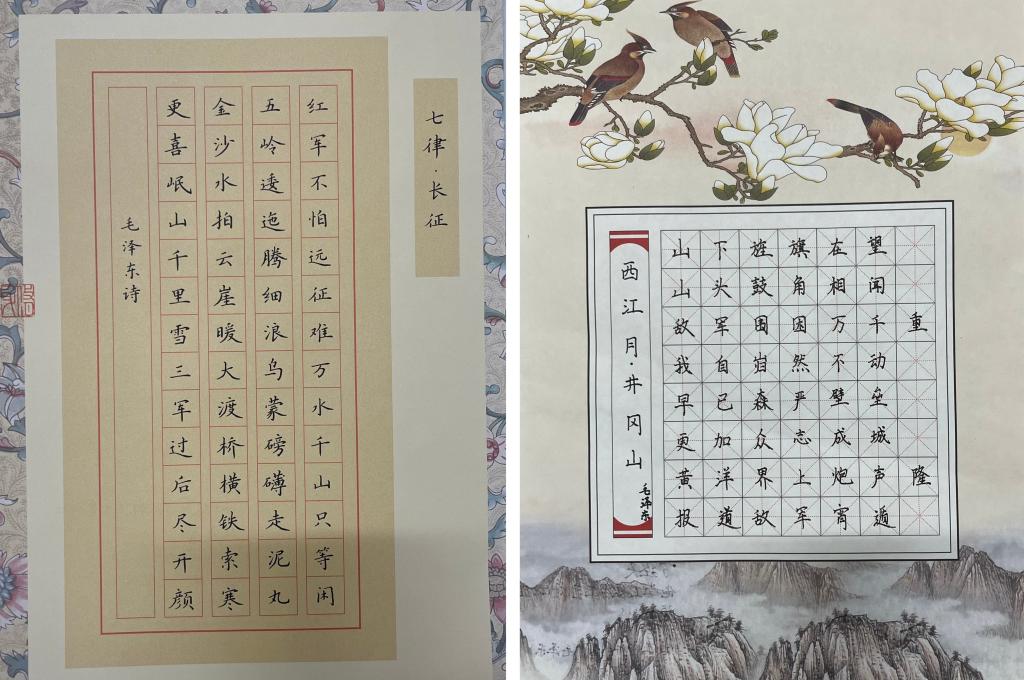 七律·长征
红军不怕远征难万水千山只等闲
五岭逶迤腾细浪乌蒙磅礴走泥丸
金沙水拍云崖暖大渡桥横铁索寒
更喜岷山千里雪三军过后尽开颜
毛泽东诗
西江月·井冈山
毛泽东
山下旌旗在望
山头鼓角相闻
敌军围困万千重
我自岿然不动
早已森严壁垒
更加众志成城
黄洋界上炮声隆
报道敌军宵遁